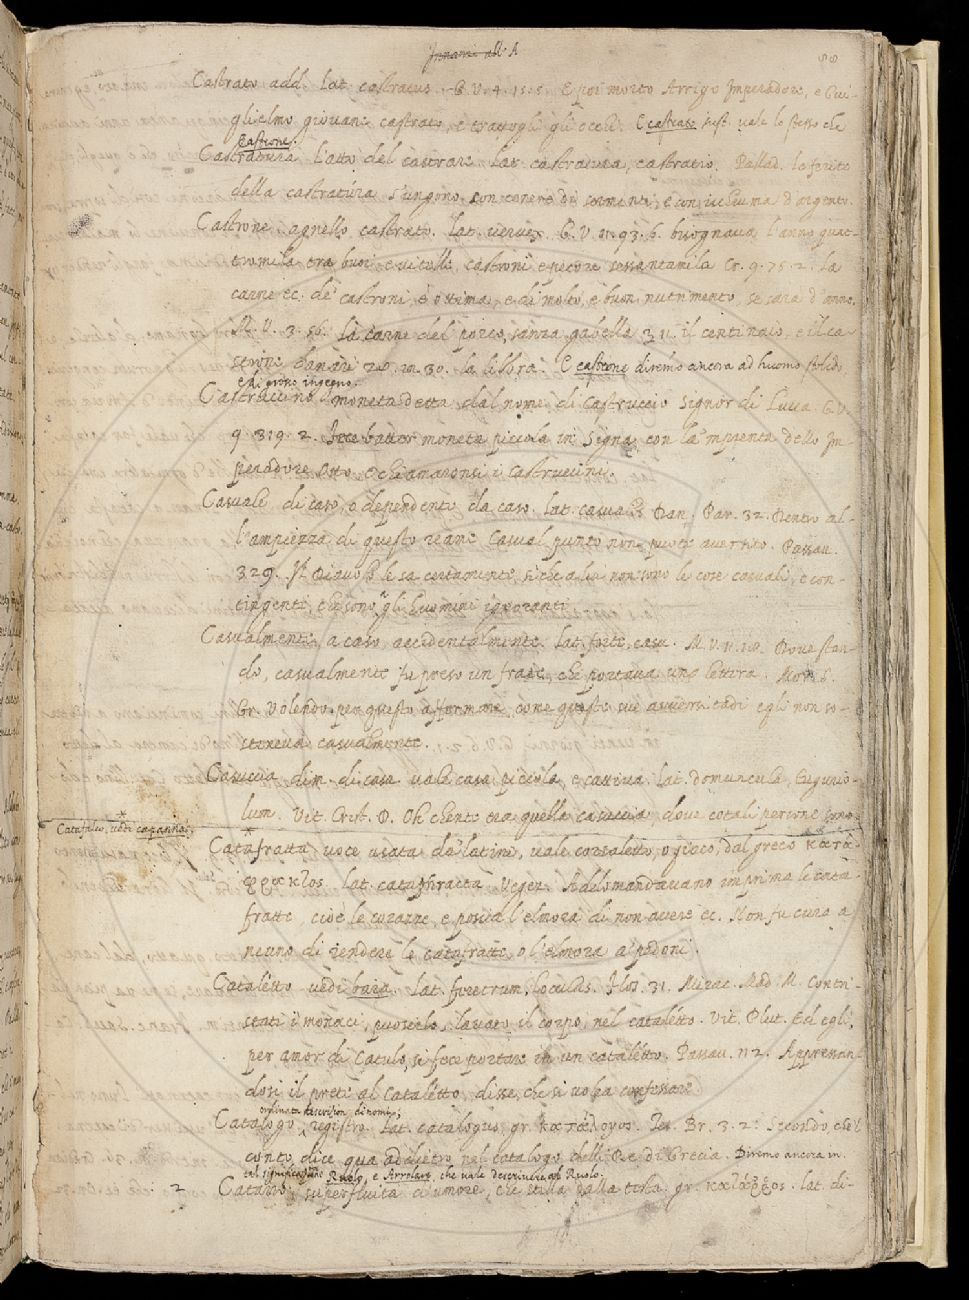 Innanzi all' A
88
Castrato add. Lat. castratus. G.V. 4. 15. 5. E poi morto Arrigo Imperadore, e Gui-
glielmo giovane castrato, e trattogli gli occhi. E castrato sust. vale lo stesso che
Castrone.
Castratura l'atto del castrare. Lat. castratura, castratio. Pallad. Le ferite
della castratura s'ungono con cenere di sermenti, e con ischiuma d'argento.
Castrone agnello castrato. Lat. vervex. G.V. 11. 93. 6. bisognava l'anno quat-
tromila tra buoi e vitelle, castroni e pecore sessantamila Cr. 9. 75. 2. La
carne ec. de' castroni, è ottima, e di molto, e buon nutrimento, se sarà d'anno.
M. V. 3. 56. La carne del porco, sanza gabella 11. il centinaio, e il ca-
strone danari 28. in 30. la libbra. E castrone diremo ancora ad huomo stolido,
e di grosso ingegno.
Castruccino moneta detta dal nome di Castruccio Signor di Lucca. G.V.
9. 319. 2. Fece batter moneta piccola in Signa con la 'mprenta dello Im-
peradore Otto, e chiamaronsi i castruccini.
Casuale di caso, o dependente da caso. Lat. casualis Dan. Par. 32. Dentro al-
l'ampiezza di questo reame Casual punto non puote aver sito. Passav.
329. Il Diavolo le sa certamente, sì che a lui non sono le cose casuali, e con-
tingenti, che sono a gli huomini ignoranti.
Casualmente, a caso, accidentalmente. Lat. forte, casu. M. V. 11. 18. Dove stan-
do, casualmente fu preso un frate, che portava una lettera. Mor. S.
Gr. Volendo per questo affermare, come queste sue avversitadi egli non so-
steneva casualmente.
Casuccia dim. di casa vale casa piccola, e cattiva. Lat. domuncula, tuguriο-
lum. Vit. Crist. D. Oh chente era quella casuccia, dove cotali persone
Catafalco, vedi capanna.
Catafratta voce usata da' latini, vale corsaletto, o giaco, dal greco κατά-
φρακτος. Lat. cataphracta Veget. Adomandavano imprima le cata-
fratte, cioè le corazze, e poscia l'elmora di non avere ec. Non fu cura a
neuno di rendere le catafratte, o l'elmora a' pedoni.
Cataletto vedi bara. Lat. feretrum, loculus. Flos. 31. Mirac. Mad. M. Contri-
stati i monaci, puoserlo, lavato il corpo, nel cataletto. Vit. Plut. Ed egli,
per amor di Catulo, si fece portare in un cataletto. Passav. 112. Appressan-
dosi il prete al cataletto, disse, che si volea confessare
ordinata descrizion di nomi;
Catalogo registro. Lat. catalogus, gr. κατάλογος. Tes. Br. 3. 2. Secondo, che 'l
conto dice qua addietro nel catalogo delli Re di Grecia. Diremo ancora in
tal significato Ruolo, e Arrolare, che vale descrivere al Ruolo.
2 Catarro, superfluità d'umore, che stilla dalla testa. gr. κατάῤῥος. Lat. di-